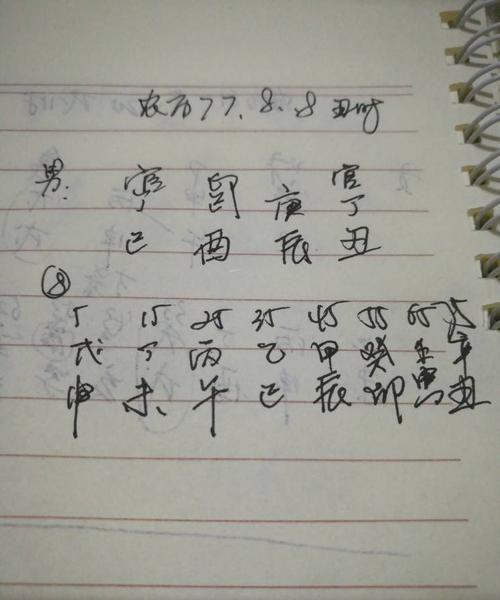 农历77.8.8 丑时
男: 官 印 官
丁 己 庚 丁
巳 酉 辰 丑
⑧
5 15 25 35 45 55 65 75
戊 丁 丙 乙 甲 癸 壬 辛
申 未 午 巳 辰 卯 寅 丑